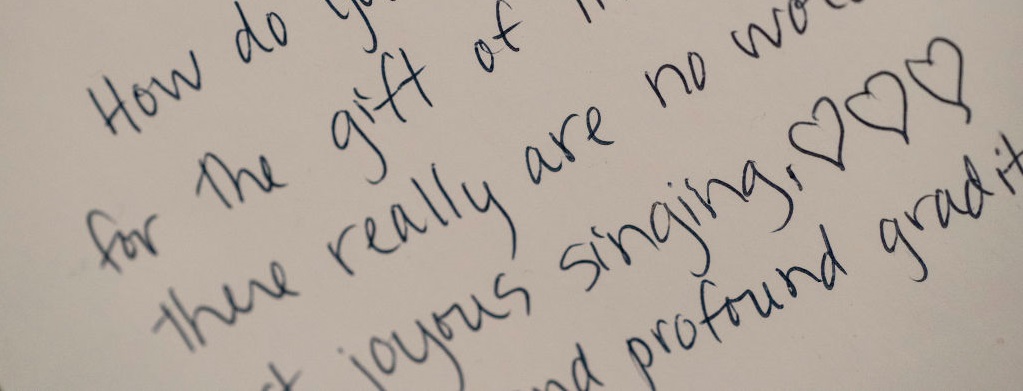 How do
for the gift of
there really are no
joyous singing, ♡♡♡
profound gradit